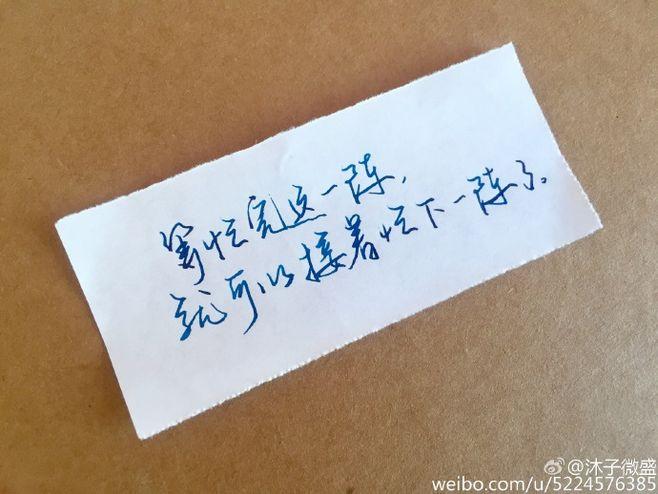 等忙完这一阵，
就可以接着忙下一阵了。
@沐子微盛
weibo.com/u/5224576385